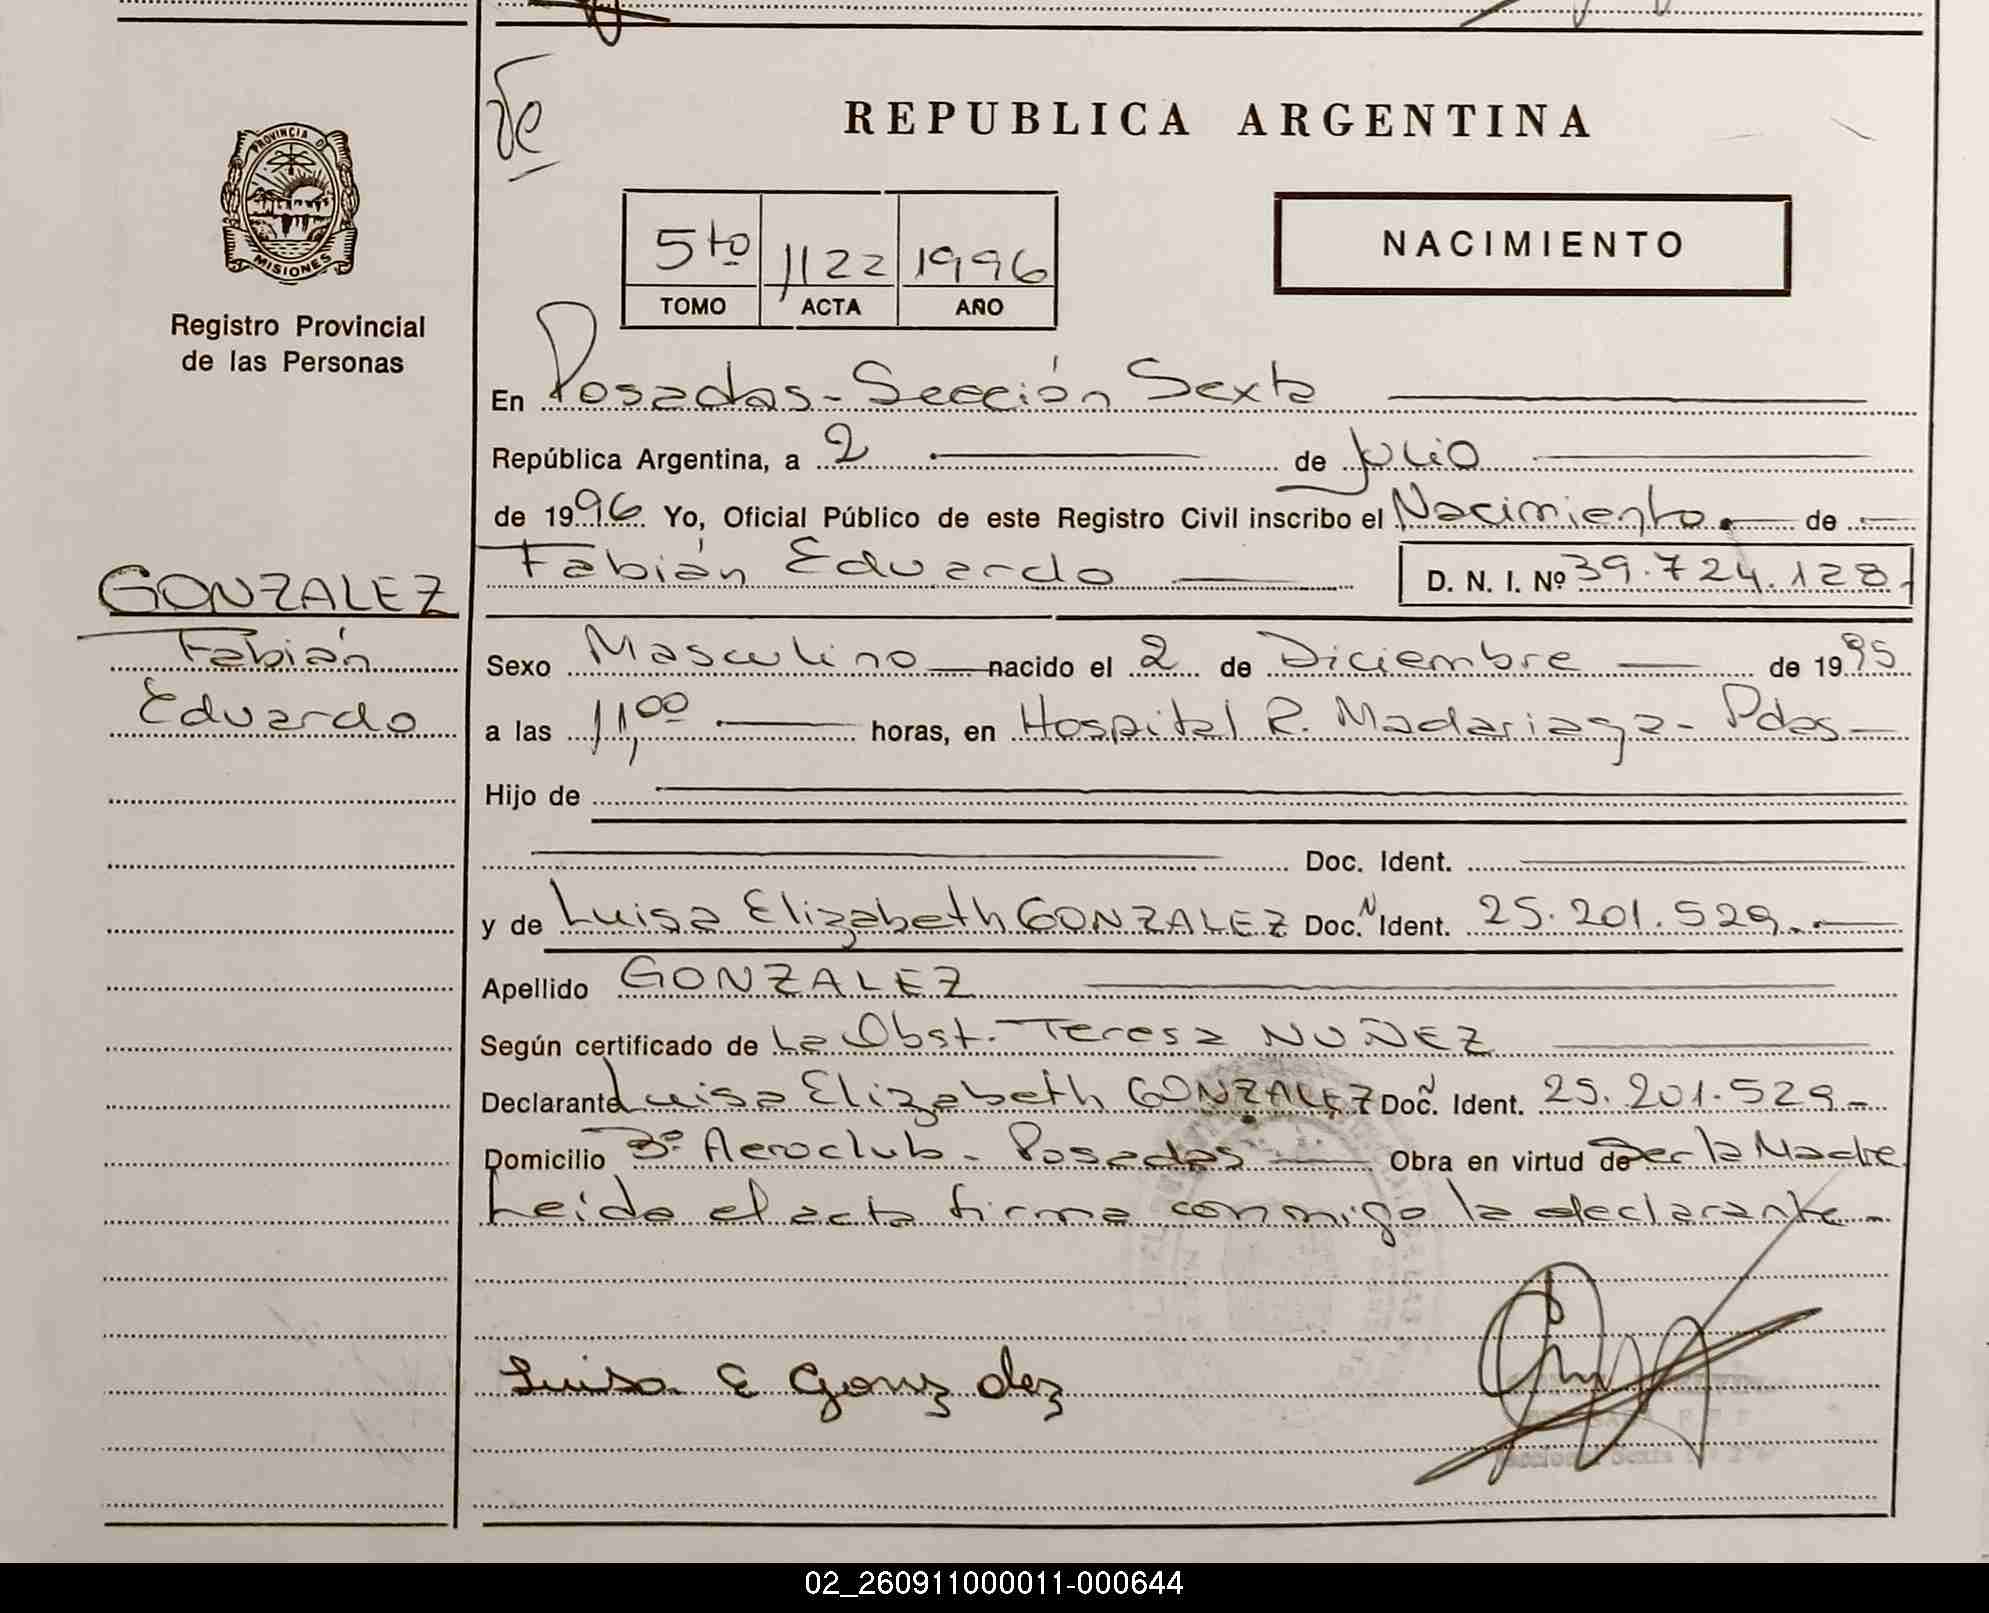 REPUBLICA ARGENTINA
PROVINCIA D
MISIONES
Registro Provincial
de las Personas
5to 1122 1996
TOMO ACTA AÑO
NACIMIENTO
En Posadas - Sección Sexta
República Argentina, a 2 de Julio
de 1996 Yo, Oficial Público de este Registro Civil inscribo el Nacimiento de
Fabián Eduardo D. N. I. Nº 39.724.128
GONZALEZ
Fabián
Eduardo
Sexo Masculino nacido el 2 de Diciembre de 1995
a las 11,00 horas, en Hospital R. Madariaga - Pdas
Hijo de
Doc. Ident.
y de Luisa Elizabeth GONZALEZ Doc. N Ident. 25.201.529.
Apellido GONZALEZ
Según certificado de La Obst. Teresa NUÑEZ
Declarante Luisa Elizabeth GONZALEZ Doc. Ident. 25.201.529 -
Domicilio Bº Aeroclub - Posadas Obra en virtud de Ser la Madre
Leída el acta firma conmigo la declarante -
Luisa E Gonzalez
02_260911000011-000644